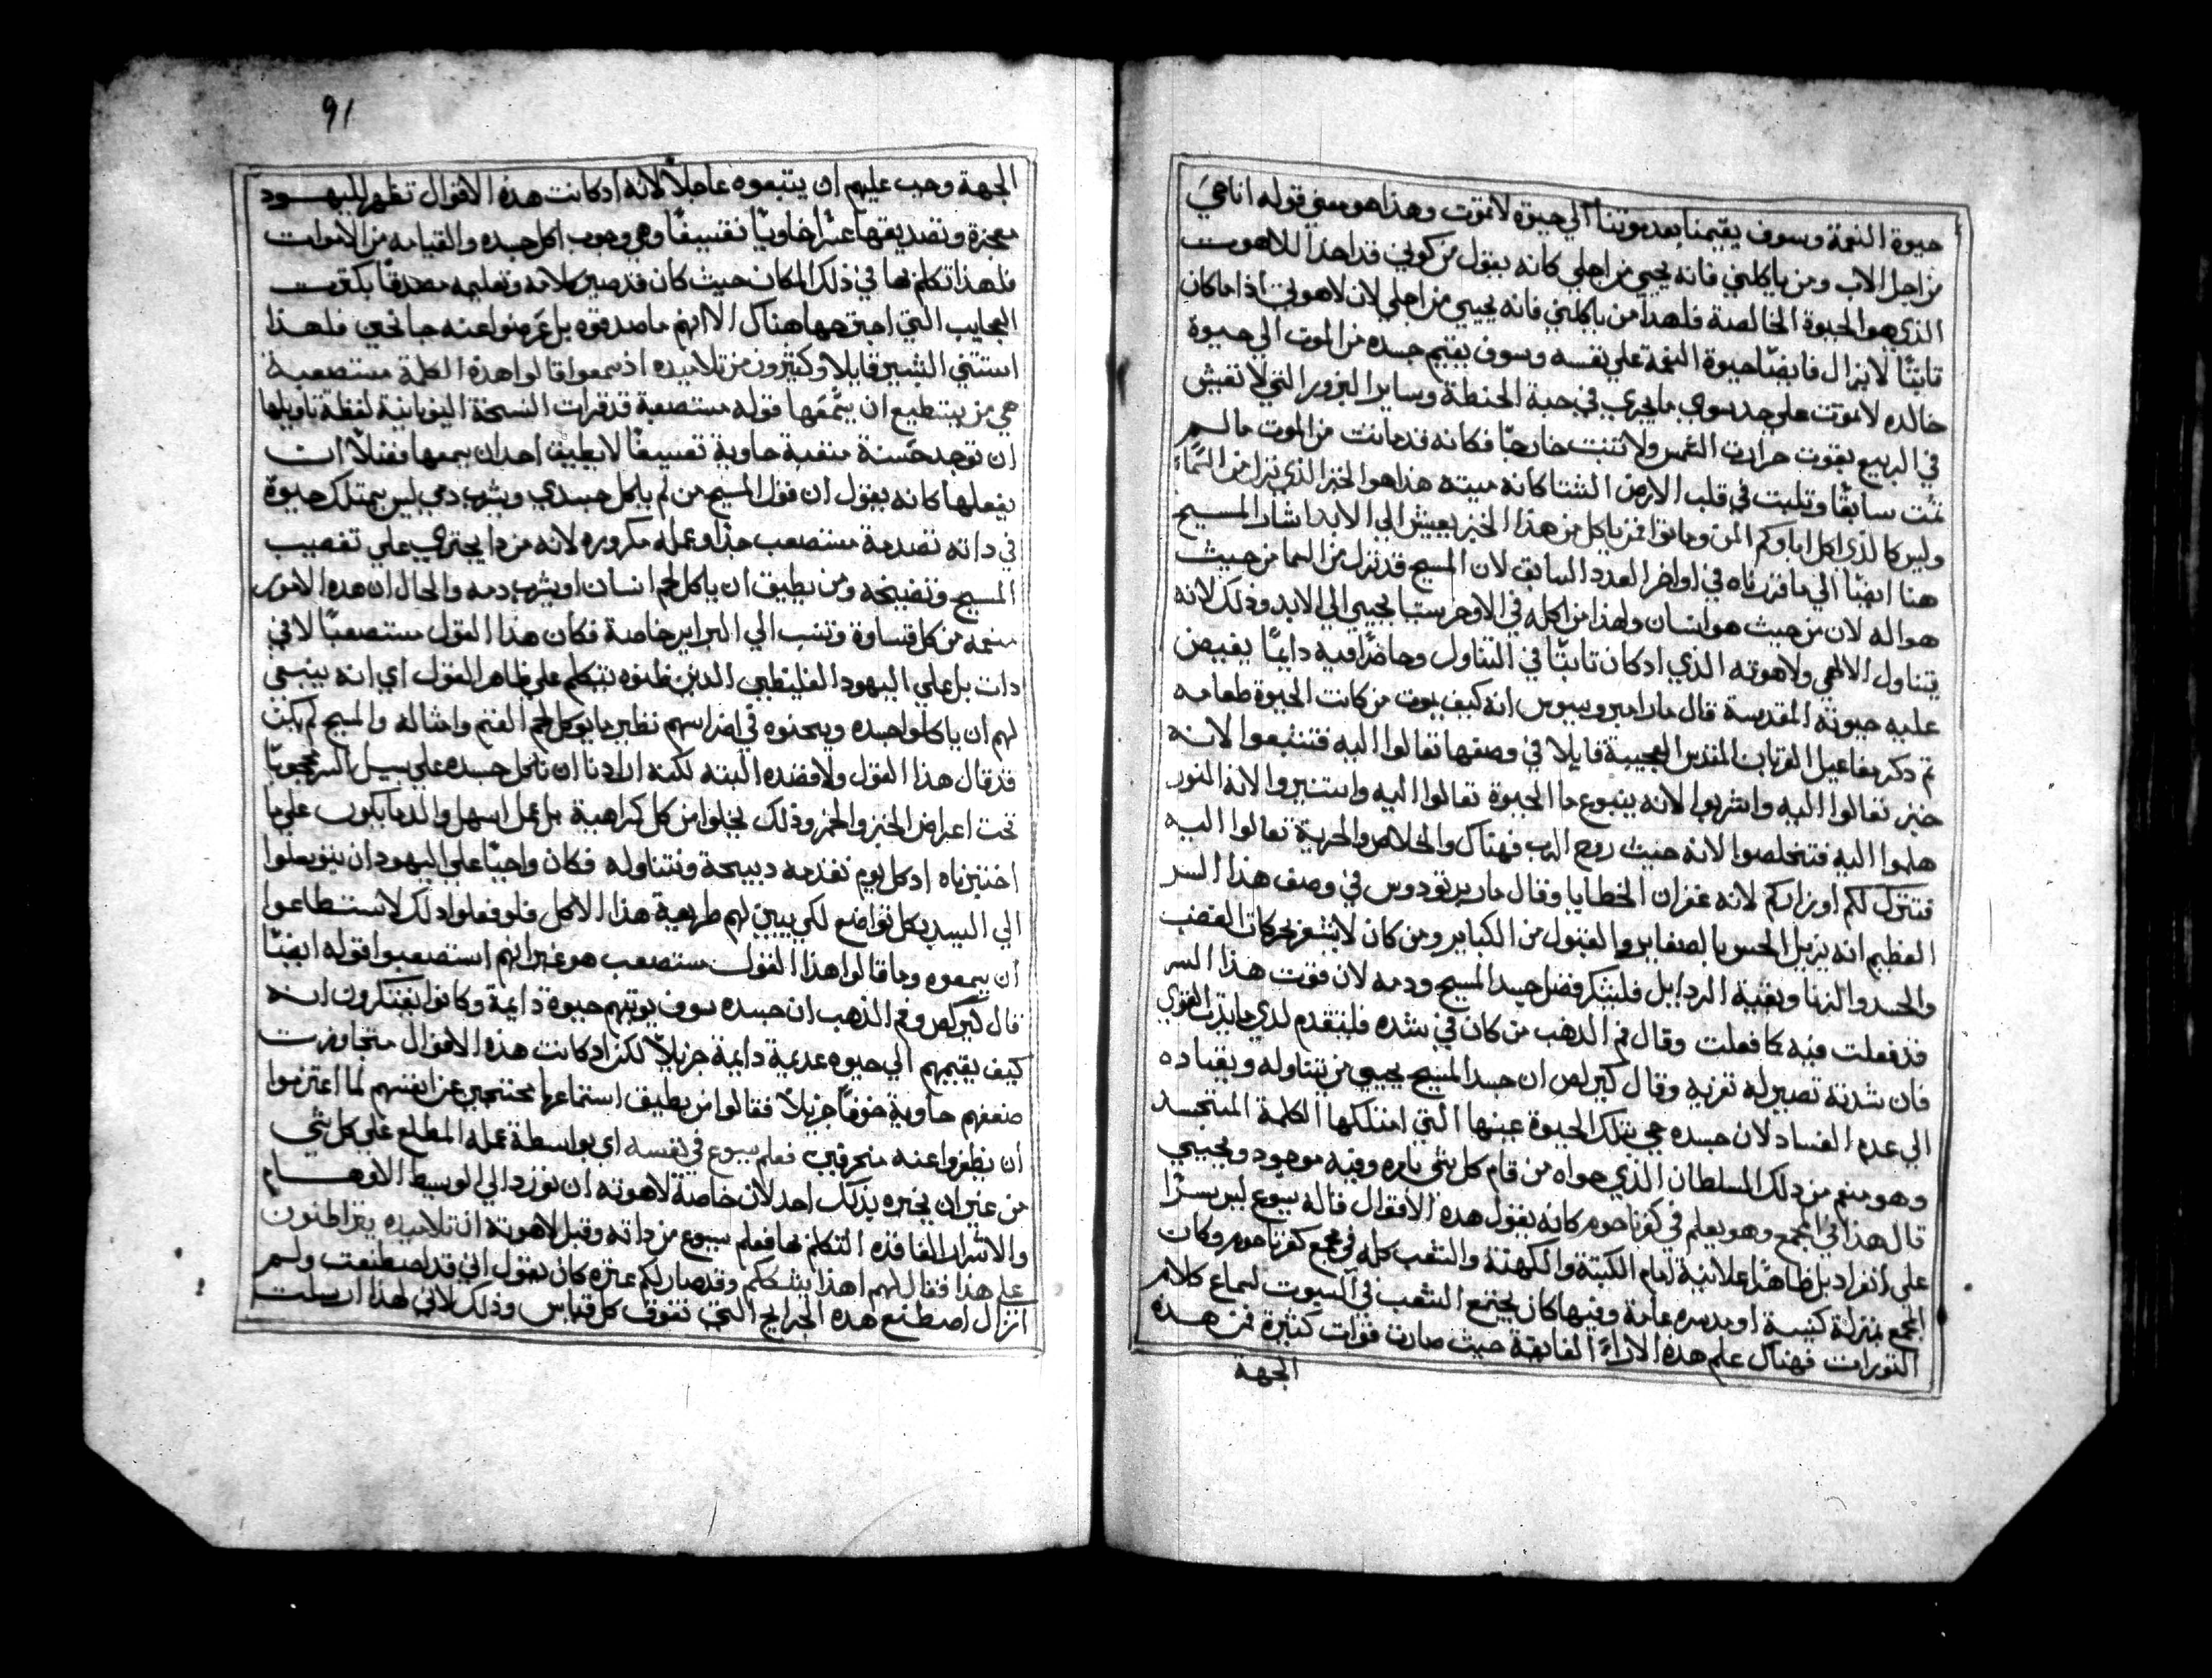 حيوة النعمة وسوف يقيمنا بعد موتنا الي حيوة لا تموت وهذا هو معني قوله انا حي
من اجل الاب ومن ياكلني فانه يحيي من اجلي كانه يقول من كوني قد اخذ اللاهوت
الذي هو الحيوة الخالصة فلهذا من ياكلني فانه يحيي من اجلي لان لاهوتي اذا ما كان
ثابتًا لا يزال فايضًا حيوة النعمة علي نفسه وسوف يقيم جسده من الموت الي حيوة
خالده لا تموت علي حد سوي ما يجري في حبة الحنطة وساير البزور التي لا تعيش
في الربيع بقوت حرارت الشمس ولا تنبت خارجًا فكانه قد ماتت من الموت ما لم
تمت سابقًا وتلبت في قلب الارض الشتا كانه ميته هذا هو الخبز الذي نزل من السماء
وليس كالذي اكل اباوكم المن وماتوا فمن ياكل من هذا الخبز يعيش الي الابد اشار المسيح
هنا ايضًا الي ما قررناه في اواخر العدد السابق لان المسيح قد نزل من السما من حيث
هو اله لان من حيث هو انسان ولهذا من اكله في الاوخرستيا يحيي الي الابد وذلك لانه
يتناول الالهي ولاهوته الذي اذ كان ثابتًا في التناول وحاضرًا فيه دايمًا يفيض
عليه حيوته المقدسة قال مار امبروسيوس انه كيف يموت من كانت الحيوة طعامه
ثم ذكر مفاعيل القربان المقدس العجيبة قايلا في وصفها تعالوا اليه فتشبعوا لانه
خبز تعالوا اليه واشربوا لانه ينبوع ما الحيوة تعالوا اليه واستنيروا لانه النور
هلموا اليه فتخلصوا لانه حيث روح الرب فهناك والخلاص والحرية تعالوا اليه
فتترك لكم اوزاركم لانه غفران الخطايا وقال مار برنودوس في وصف هذا السر
العظيم انه يزيل الحس بالصغاير والقبول من الكباير ومن كان لا يشعر بحركات الغضب
والحسد والزنا وبقية الردايل فليشكر فضل جسد المسيح ودمه لان قوت هذا السر
قد فعلت فيه كما فعلت وقال فم الذهب من كان في شده فليتقدم لدي مايدت القوي
فان شدته تصير له تعزيه وقال كيرلص ان جسد المسيح يحيي من يتناوله ويقتاده
الي عدم الفساد لان جسده حي بتلك الحيوة عينها التي امتلكها الكلمة المتجسد
وهو منعم من ذلك السلطان الذي هو اه من قام كل شي بامره وفيه موجود ويحيي
قال هذا في المجمع وهو يعلم في كفرناحوم كانه يقول هذه الاقوال قاله يسوع ليس سرًا
علي انفراد بل ظاهرًا علانية امام الكتبة والكهنة والشعب كله في مجمع كفرناحوم وكان
المجمع بمنزلة كنيسة او مدرسه عامة وفيها كان يجتمع الشعب في السبوت لسماع كلام
التورات فهناك علم هذه الاراء الفايقة حيث صارت قوات كثيرة فمن هذه
الجهة
91
الجهة وجب عليهم ان يتبعوه عاجلًا لانه اذ كانت هذه الاقوال تظهر لليهود
معجزة وتصديقها عسرًا حاويًا تقشيفًا وهي وجوب اكل جسده والقيامه من الاموات
فلهذا تكلم بها في ذلك المكان حيث كان قد صير كلامه وتعليمه مصدقًا بكثرت
العجايب التي اجترحها هناك الا انهم ما صدقوه بل عرضوا عنه جانحين فلهذا
استتني البشير قايلا وكثيرون من تلاميذه اذ سمعوا قالوا هذه الكلمة مستصعبة
هي من يستطيع ان يسمعها قوله مستصعبة قد قرات النسخة اليونانية لفظة تاويلها
ان توجد خشنة متعبة حاوية تعسيفًا لا يطيق احد ان يسمعها فضلًا ان
يفعلها كانه يقول ان قول المسيح من لم ياكل جسدي ويشرب دمي ليس يمتلك حيوة
في داته تصدمة مستصعب جدًا وعمله مكروره لانه من دا يجتري علي تغصيب
المسيح وتفضيخه ومن يطيق ان ياكل لحم انسان او يشرب دمه والحال ان هذه الامور
مفعمه من كل قساوة وتنسب الي البرابر خاصة فكان هذا القول مستصعبًا لا في
دات بل علي اليهود الغليظين الدين ظنوه يتكلم علي ظاهر القول اي انه ينبغي
لهم ان ياكلوا جسده ويسحنوه في اضراسهم نظير ما يوكل لحم الغنم وامثاله والمسيح لم يكن
قد قال هذا القول ولا قصده البته لكنه ارادنا ان ناكل جسده علي سبيل السر محجوبًا
تحت اعراض الخبز والخمر وذلك بخلوا من كل كراهية بل بعمل اسهل والدما يكون علي ما
اختبرناه اد كل يوم نقدمه دبيحة ونتناوله فكان واجبًا علي اليهود ان يتوسلوا
الي السيد بكل تواضع لكي يبين لهم طريقة هذا الاكل فلو فعلوا دلك لاستطاعوا
ان يسمعوه وما قالوا هذا القول مستصعب هو غير انهم استصعبوا قوله ايضًا
قال كيرلص وفم الذهب ان جسده سوف يوتيهم حيوة دايمة وكانوا يفتكرون انه
كيف يقيمهم الي حيوه عديمة دايمة جزيلًا لكن اد كانت هذه الاقوال متجاوزت
ضعفهم حاوية خوفًا جزيلًا فقالوا من يطيق استماعها محتجين عن انفسهم لما اعتزموا
ان يطفروا عنه منحرفين فعلم يسوع في نفسه اي بواسطة عمله المطلع علي كل شي
من غير ان يخبره بذلك احد لان خاصة لاهوته ان تورد الي الوسيط الاوهام
والاسرار الفاقده التكلم بها فعلم يسوع من داته وقبل لاهوته ان تلاميذه يتراطنون
علي هذا فقال لهم اهذا يشككم وقد صار لكم عثره كان يقول اني قد اصطنعت ولم
ازال اصطنع هذه الجرايح التي تفوق كل قياس وذلك لاني لهذا ارسلت